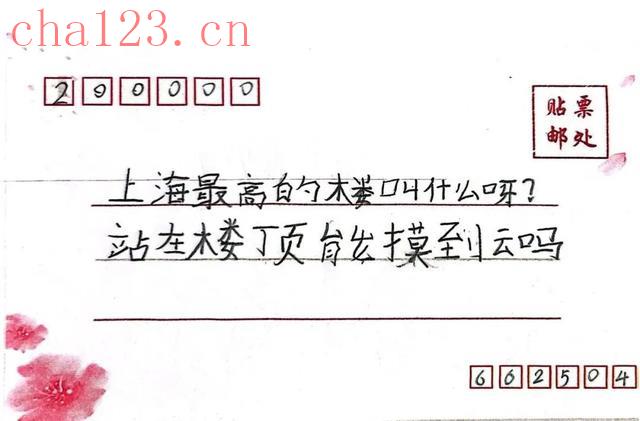 cha123.cn
200000
贴票
邮处
上海最高的楼叫什么呀?
站在楼顶能摸到云吗
662504